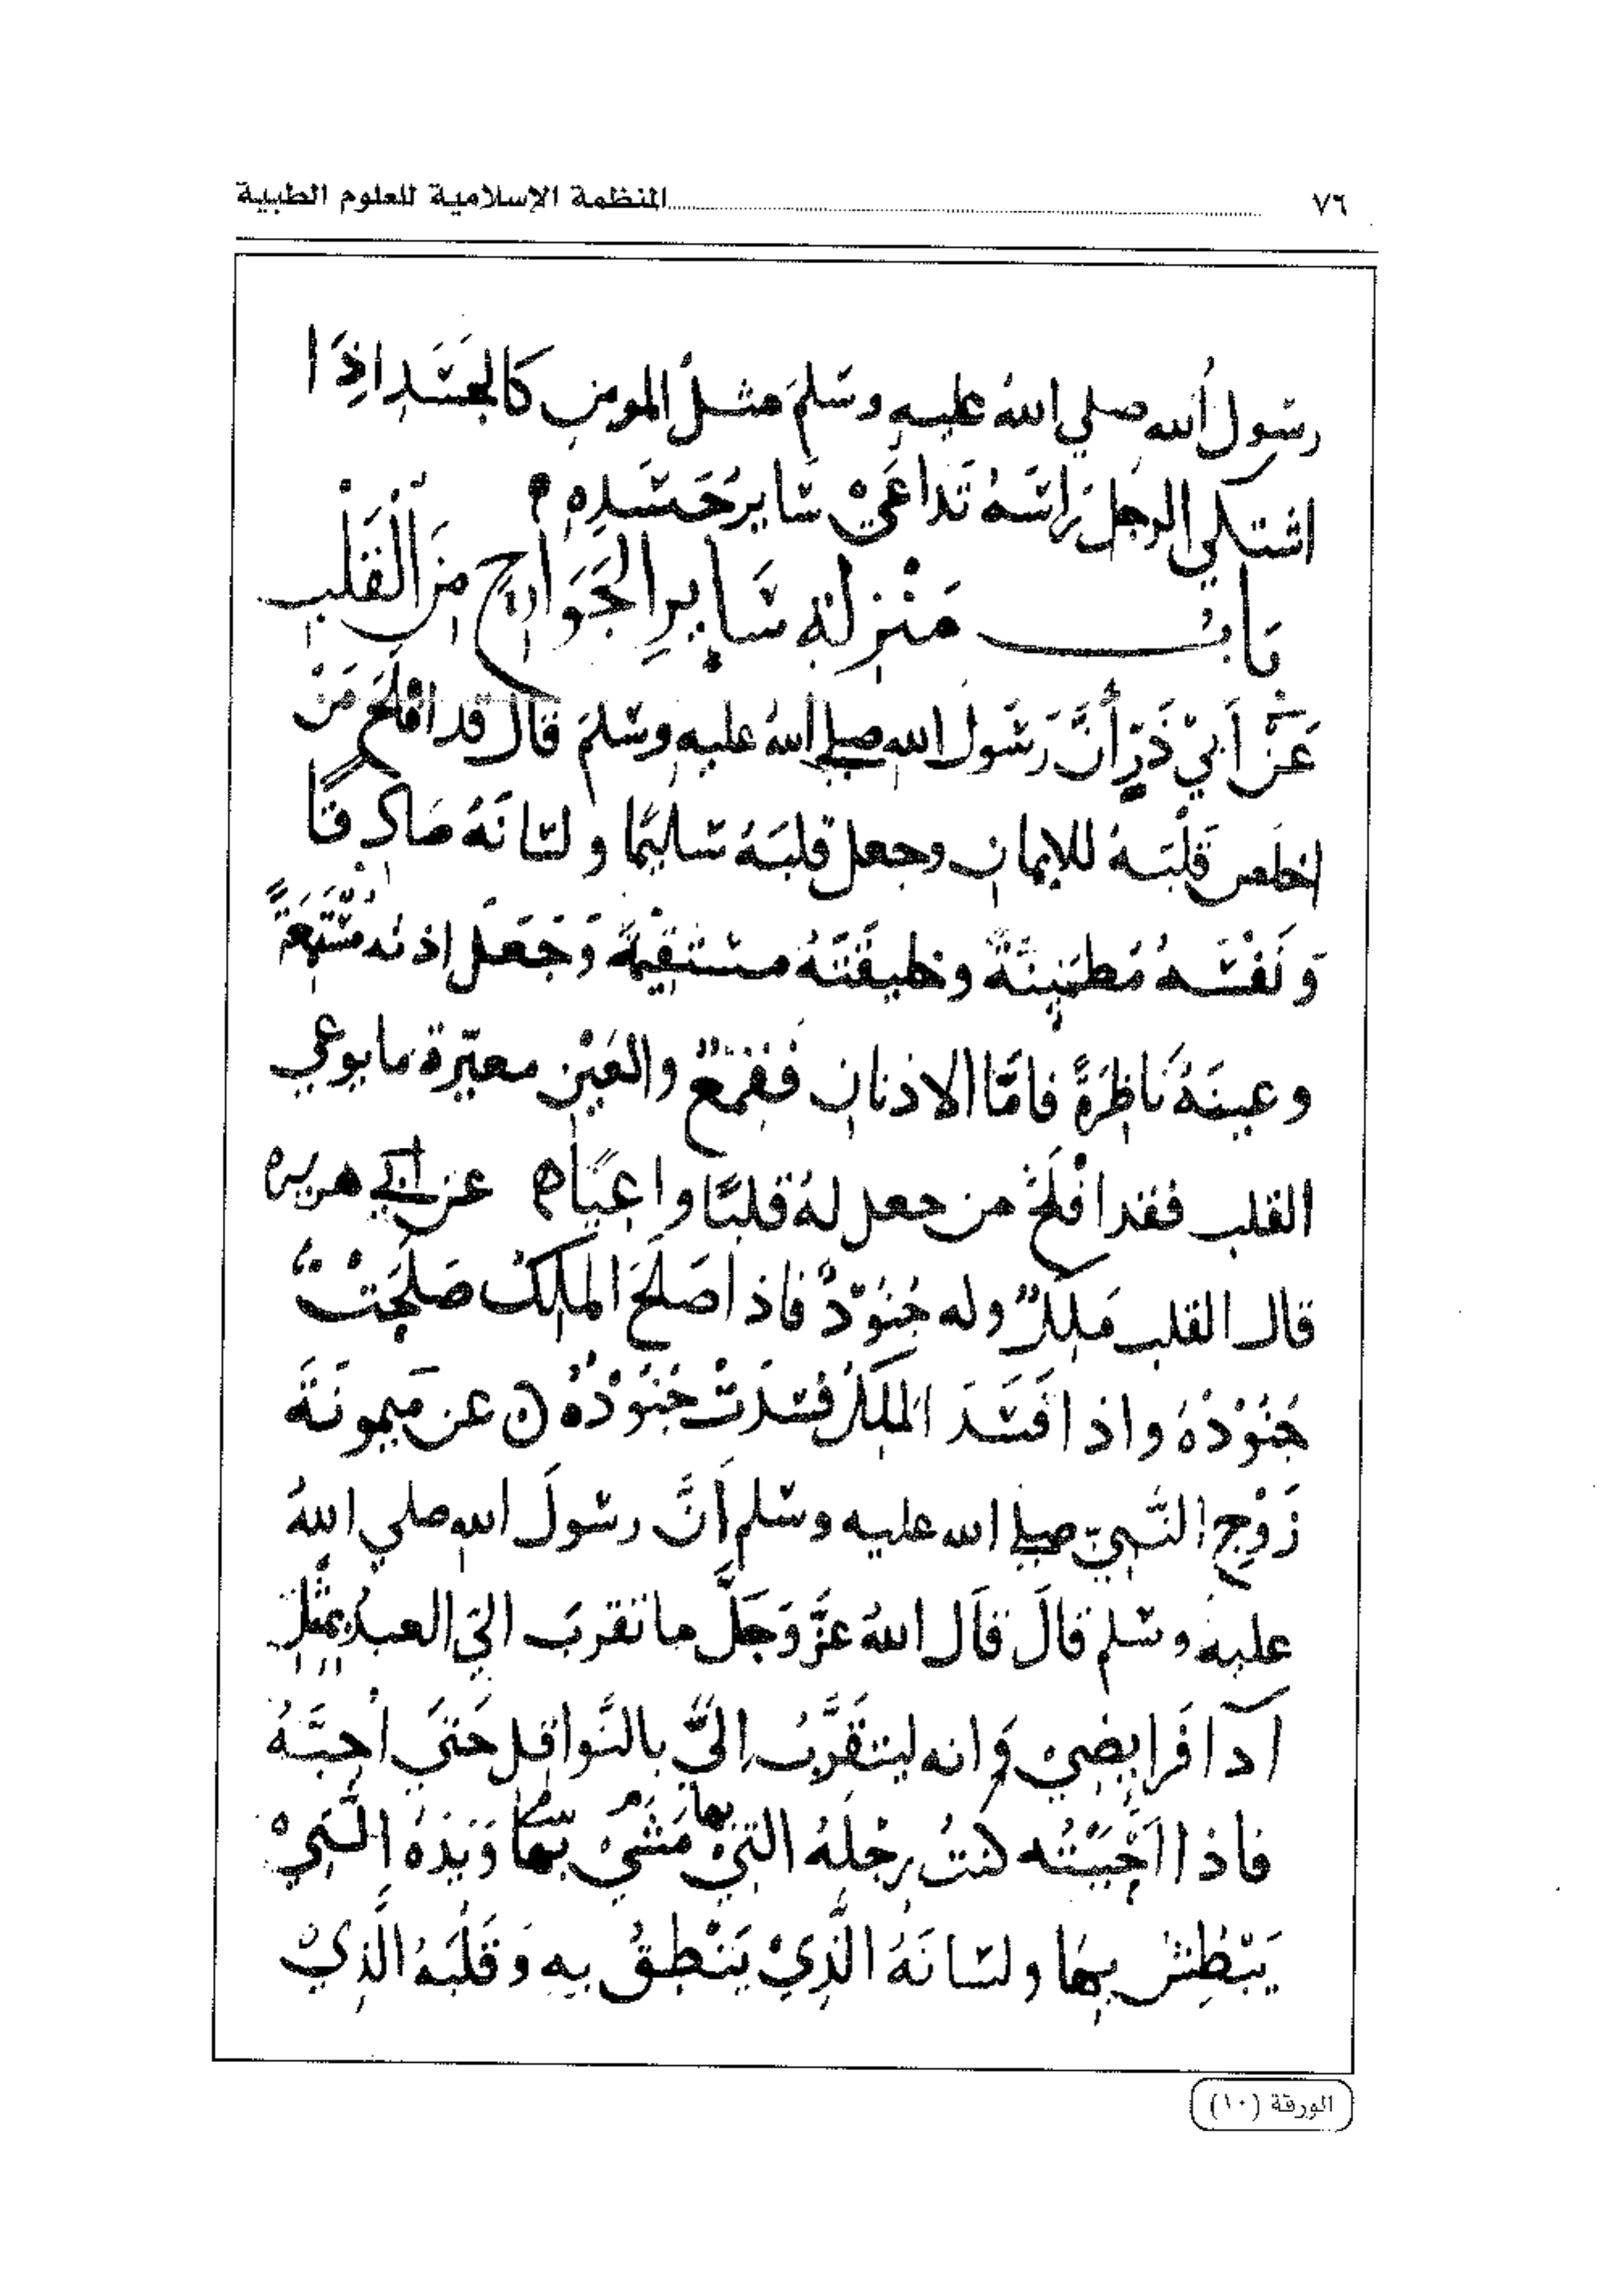 ٧٦ المنظمة الإسلامية للعلوم الطبية
رسول الله صلي اللهُ عليه وسَلمَ مثلُ المومن كالجَسَدِ اذِا
اشتكي الرجل رَاسَهُ تَداعَيْ سَايرُ جَسَدِهِ ه
بَابُ مَنْزِلَةِ سَايرِ الجَوَارحِ مِنَ الْقَلْبِ
عَنْ اَبيْ ذَرٍّ أنَّ رَسُولَ الله صلي اللهُ عليه وسَلمَ قالَ قد افْلَحَ مَنْ
اخلَصَ قَلْبَهُ للايمانِ وجعل قلبَهُ سَليمًا ولسَانَهُ صَادِقًا
وَنَفْسَهُ مُطمَئِنَّةً وخليقَتَهُ مستقيمَةً وَجَعَلَ اذنُهُ مُسْتَمِعَةً
وعينَهُ نَاظِرَةً فامَّا الاذنانِ فَقِمْعٌ والعَيْنِ معبّرة ما يوعي
القلب فقد افْلَحَ من جعل لهُ قلبًا واعيًا ه عن ابي هريره
قال القلب مَلِكٌ وله جُنُوْدٌ فاذا صَلَحَ المَلِكُ صَلَحَتْ
جُنُوْدُهُ واذا فَسَدَ المَلِكُ فسَدَتْ جُنُوْدُهُ ن عن مَيمونَةَ
زَوْجِ النَّبيّ صلي الله عليه وسَلم أَنَّ رسُولَ الله صلي اللهُ
عليه وسَلم قالَ قَال اللهُ عَزَّ وَجَلَّ ما تقربَ اليَ العبدُ بِمثْلِ
آدا فَرايضِيْ وَانه ليتقَرَّبُ اليَّ بالنَّوافِل حَتيَ أحِبَّهُ
فاذا اَحْبَبْتُه كنتُ رِجْلَهُ التيْ مَشيْ بهَا وَيَدَهُ الَّتيْ
يَبْطِشُ بِهَا ولسَانَهُ الَّذِيْ يَنْطِقُ بِهِ وَقَلبَهُ الَّذِيْ
الورقة (١٠)